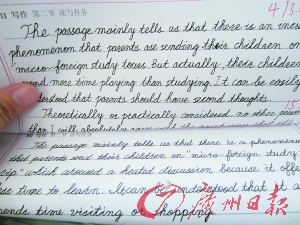 II 写作 第二节 读写任务
4/3.
The passage mainly tells us that there is an incre
phenomenon that parents are sending their children on
"micro-foreign study tours but actually, their children
spend more time playing than studying. It can be easily
understood that parents should have second thoughts.
Theoretically or practically considered, no other person
than I will absolutely agree with the
The passage mainly tells us that there is a phenomenon
that parents send their children on "micro-foreign study
trip" which aroused a heated discussion because it offe
less time to learn. It can be understood that it a
spends time visiting or shopping
广州日报